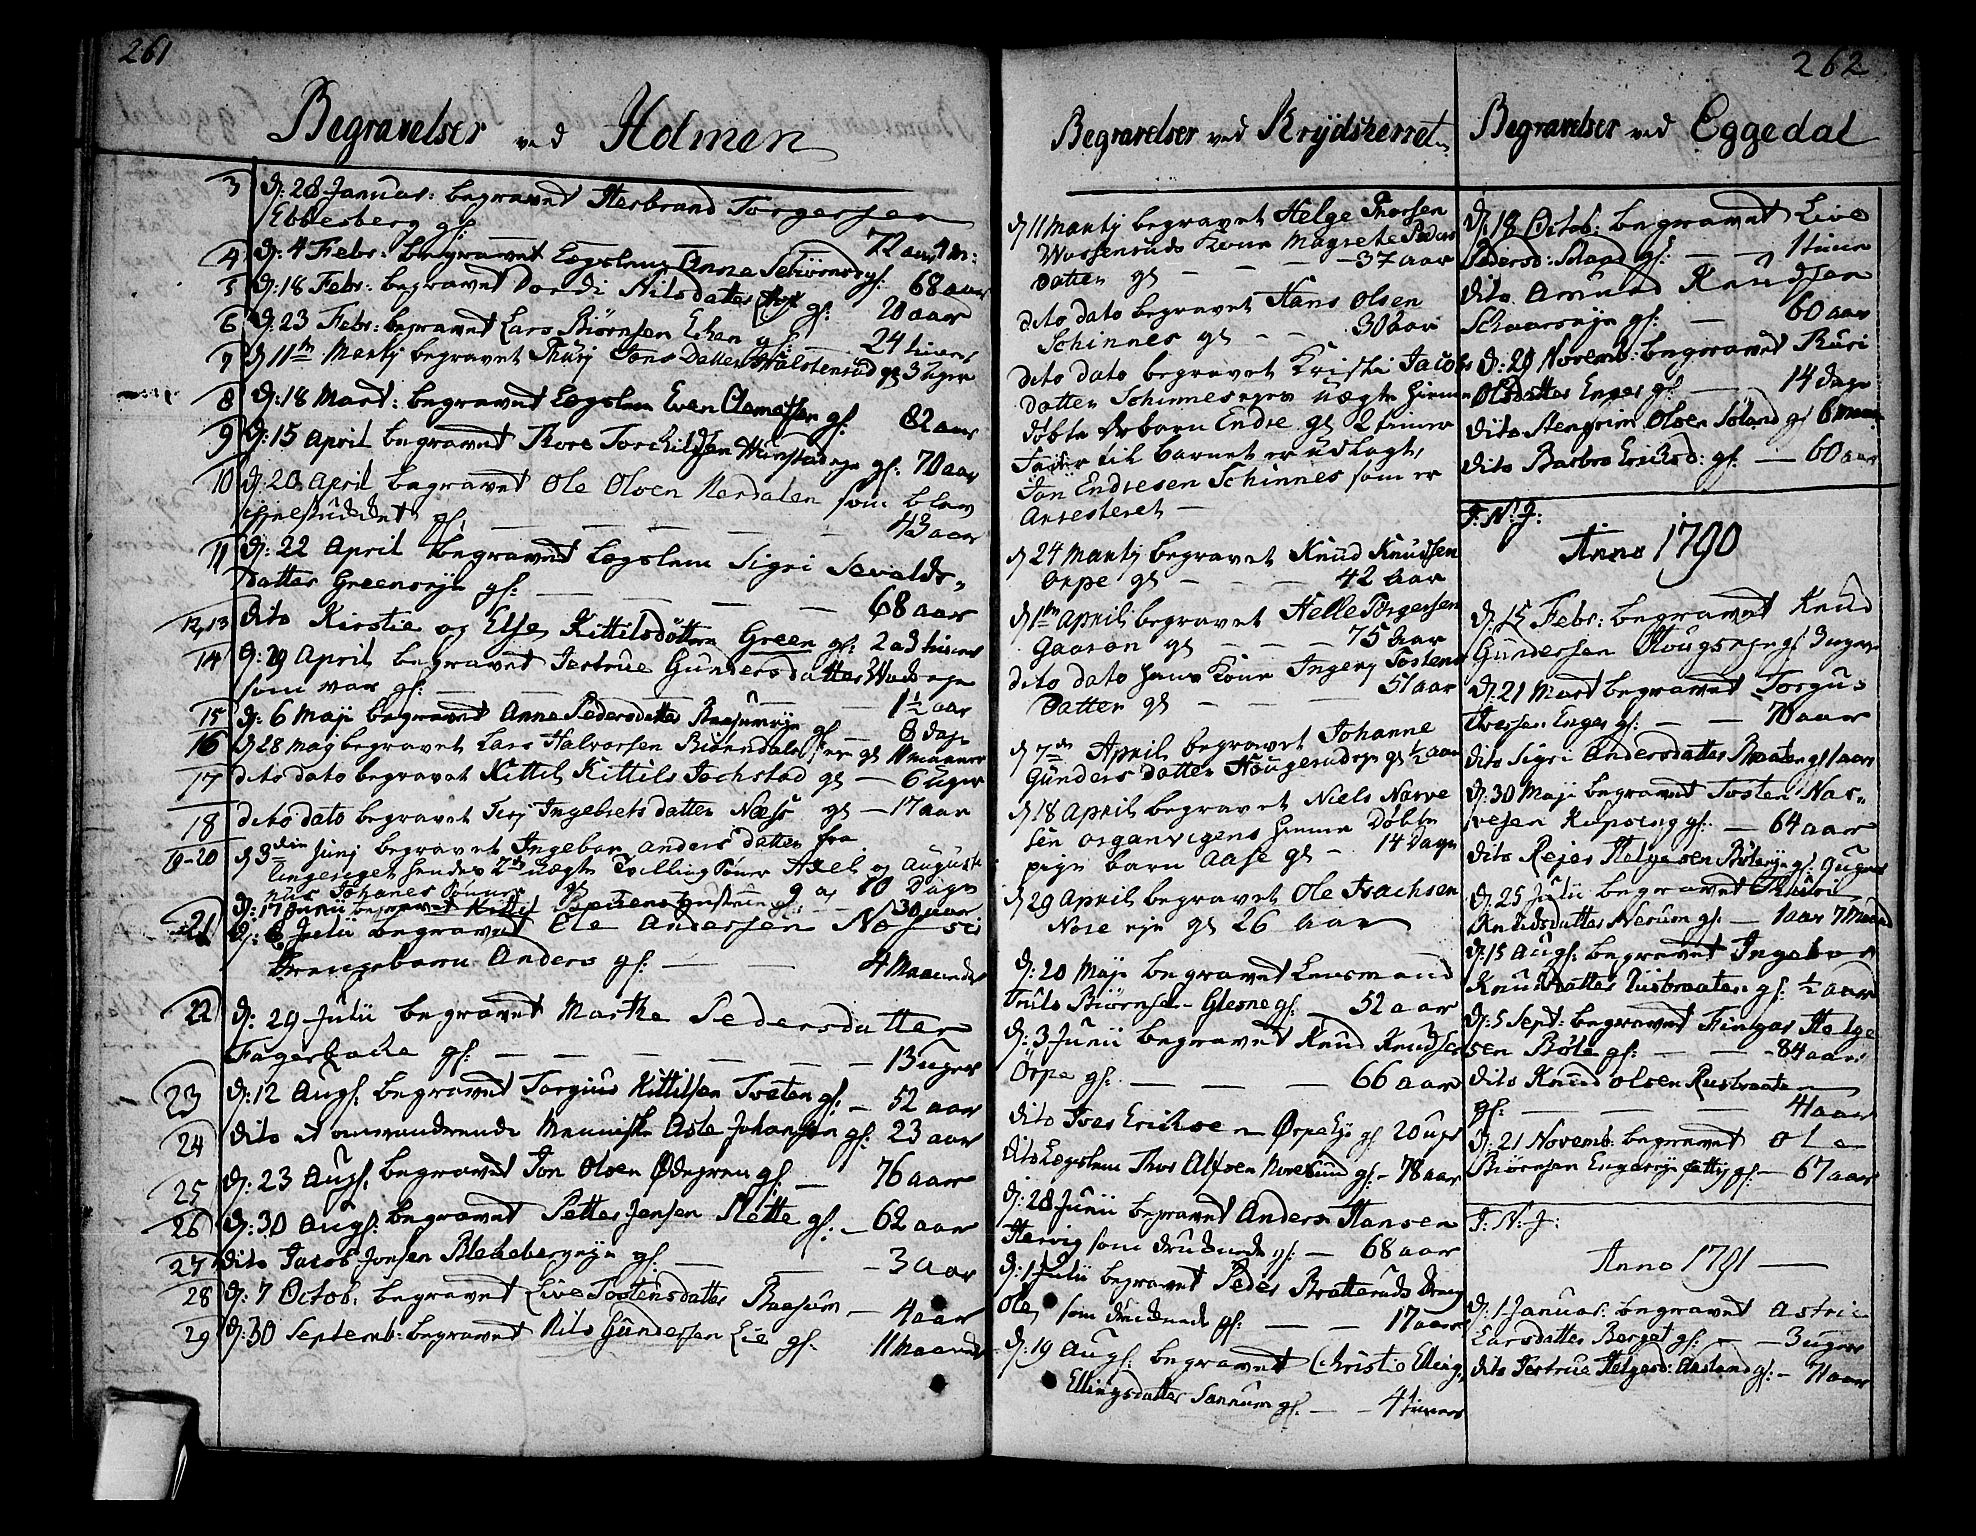 261
Begravelser ved Holmen
3 d: 28 Januar: begravet Herbrand Torgersen
Ebbesberg gl: 72 aar
4 d: 4 Febr: begravet Legslem Anna gl: 68 aar
5 d: 18 Febr: begravet Dordi Nilsdatter gl: 20 aar
6 d: 23 Febr: begravet Lars Biørnsen Eken gl: 24 timer
7 d 11te Martj begravet Thurj Jons Datter Halstensrud gl 3 uger
8 d: 18 Mart: begravet Legslem Even Clemetsen gl: 82 aar
9 d: 15 April begravet Thore Torchildsen gl: 70 aar
10 d: 20 April begravet Ole Olsen Nerdalen som blev
gl: — — — 43 aar
11 d: 22 April begravet Legslem Sigri Sevalds-
datter Greenseje gl: — — — 68 aar
12, 13 dito Kirstie og Else Kittilsdøttre Green gl: 2 a 3 timer
14 d: 29 April begravet Jertrue Gundersdatter
som var gl: — — — 1½ aar
15 d: 6 Maji begravet Anne Pedersdatter gl — 8 dage
16 d 28 Maj begravet Lars Halvorsen Biørndalen eje gl 11 maaner
17 dito dato begravet Kittil Kittils Jochstad gl — 6 uger
18 dito dato begravet Ingebretsdatter Næss gl — 17 aar
19-20 d 3die Junj begravet Ingebor anders datter fra
hendes 2de uægte Tvilling Sønner Axel og August
Johanes Sønner gl 9 og 10 Dage
d: 17 Junii begravet Kittil gl: — 30 aar
21 d: 8 Julii begravet Ole Andersen
Drengebarn Anders gl: — — 4 Maaneder
22 d: 29 Julii begravet Marthe Pedersdatter
Fagerbache gl: — — — — 13 uger
23 d: 12 Augs: begravet Torgius Kittilsen Tveten gl: — 52 aar
24 dito et omvandrende Menniske Asle Johansen gl: 23 aar
25 d: 23 Augs: begravet Jon Olsen Ødegren gl: — 76 aar
26 d: 30 Augs: begravet Petter Jensen Slette gl: — 62 aar
27 dito Jacob Jonsen Blekebergseje gl: — — 3 aar
28 d: 7 Octob: begravet Live Tostensdatter Braasum — 4 aar
29 d: 30 Septemb: begravet Nils Gundersen Lie gl: 11 Maaneder
262
Begravelser ved Krydskerret
d 11 Martj begravet Helge Thorsen
Kone Magrete Peders
datter gl — — — 37 aar
dito dato begravet Hans Olsen
Schinnes gl — — 30 aar
dito dato begravet Kristi Jacobs
Datter Schinnes ejes uægte hieme
døbte barn Endre gl 2 timer
Fader til barnet er udlagt,
Jon Endresen Schinnes som er
Arresteret —
d 24 Martj begravet Knud Knudsen
Ørpe gl — — — 42 aar
d 1ste April begravet Helle Torgersen
Gaaran gl — — — 75 aar
dito dato hans Kone Ingerj Tostens
Datter gl — — — 51 aar
d 7de April begravet Johanne
Gunders datter Hougerud eje gl ½ aar
d 18 April begravet Niels Narve
sen organvigens hieme Døbte
pige barn Aase gl — 14 Dage
d 29 April begravet Ole Isachsen
Nore eje gl 26 aar
d: 20 Maji begravet Lensmand
Truls Biørnsen Glesne gl: — 52 aar
d: 3 Junii begravet Knud Knudsen
Ørpe gl: — — — 66 aar
dito Iver Eriksen Ørpe Eje gl 20 uger
dito Legslem Thor Alfsen gl: — 78 aar
d: 28 Junii begravet Anders Hansen
Hervig som druknede gl: — 68 aar
d: 1 Julii begravet Peder Bratteruds Dreng
Ole, som druknede gl: — — 17 aar
d: 19 Augs: begravet Christi Elling,
Ellingsdatter Sannum gl: — — 4 timer
Begravelser ved Eggedal
d: 18 Octob: begravet Live
Pedersd: Søland gl: — — 1 time
dito Amund Knudsen
gl: — 60 aar
d: 29 Novemb: begravet Kari
Olsdatter Enger gl: — 14 dage
dito Stengrim Olsen Søland gl 6 maan
dito Barbro Eriksd: gl: — 60 aar
I: N: J:
Anno 1790
d: 15 Febr: begravet Knud
Gundersen Hougseje gl 3 uger
d: 21 Mart begravet Torgus
Enger gl: — — 70 aar
dito Sigri Andersdatter gl 1 aar
d: 30 Maji begravet Tosten Nar-
vesen Kopseng gl: — 64 aar
dito Rejer Helgesen gl: 9 uger
d: 25 Julii begravet
Knudsdatter Nerum gl: — 1 aar 7 Maaned
d: 15 Augs: begravet Ingebor
Knudsdatter Rustbraaten gl: ½ aar
d: 5 Sept: begravet Fingar Helge
sen Bøle gl: — — 84 aar
dito Knud Olsen Rustbraaten
gl: — — — 4 aar
d: 21 Novemb: begravet Ole
Biørnsen Engerseje gl: — 67 aar
I: N: J:
Anno 1791 —
d: 1 Januar: begravet Astri
Larsdatter Berget gl: — — 3 uger
dito Jertrue Helgesd: Aasland gl: — 11 aar